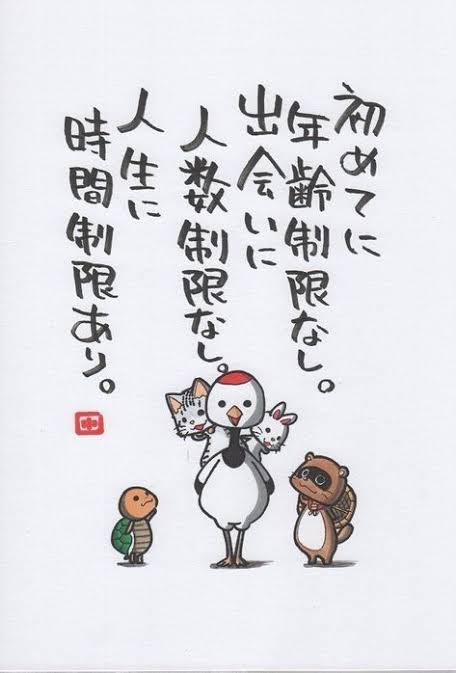 初めてに
年齢制限なし。
出会いに
人数制限なし。
人生に
時間制限あり。